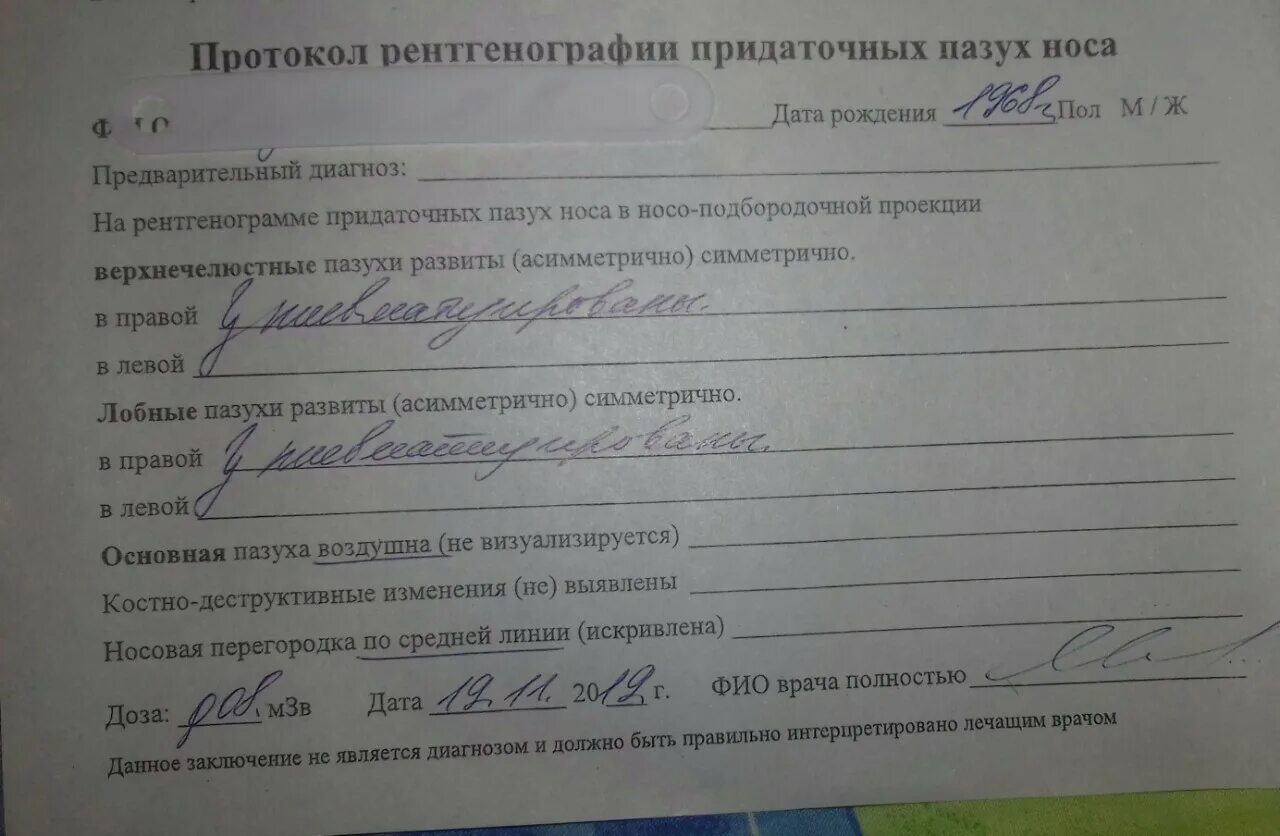 Протокол рентгенографии придаточных пазух носа
Дата рождения 1968г Пол М / Ж
Предварительный диагноз:
На рентгенограмме придаточных пазух носа в носо-подбородочной проекции
верхнечелюстные пазухи развиты (асимметрично) симметрично.
в правой пневматизированы.
в левой
Лобные пазухи развиты (асимметрично) симметрично.
в правой пневматизированы.
в левой
Основная пазуха воздушна (не визуализируется)
Костно-деструктивные изменения (не) выявлены
Носовая перегородка по средней линии (искривлена)
Доза: 0,08 мЗв Дата 19.11. 2019 г. ФИО врача полностью
Данное заключение не является диагнозом и должно быть правильно интерпретировано лечащим врачом